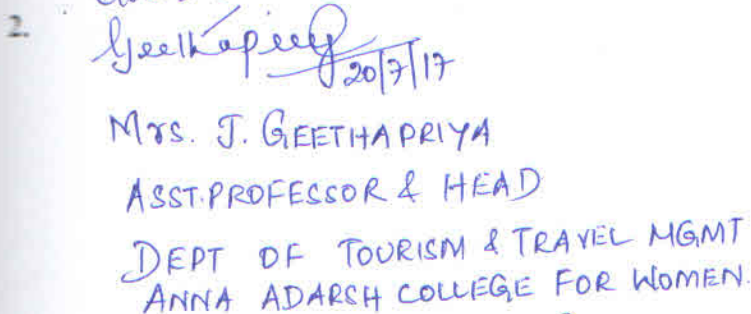 2.
Geethapriy
20/7/17
Mrs. J. GEETHAPRIYA
ASST.PROFESSOR & HEAD
DEPT OF TOURISM & TRAVEL MGMT
ANNA ADARSH COLLEGE FOR WOMEN.